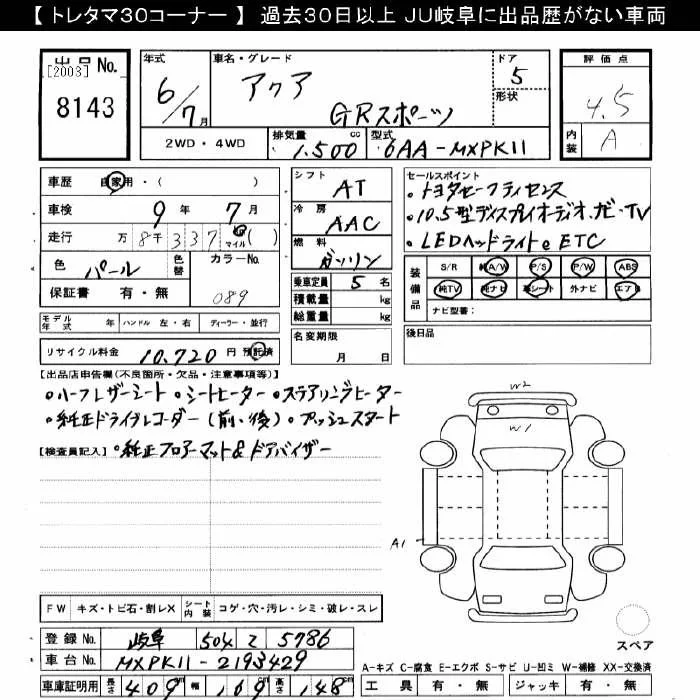 【 トレタマ30コーナー 】 過去30日以上 JU岐阜に出品歴がない車両
出品No. 年式 車名・グレード ドア 評価点
[2003] アクア 5
8143 6/7月 GRスポーツ 形状 4.5
2WD・4WD 排気量 1,500 cc 型式 6AA-MXPK11 内装 A
車歴 自家用・( ) シフト AT セールスポイント
車検 9年 7月 冷房 AAC ・トヨタセーフティセンス
走行 万 8千337 マイル ( ) 燃料 ガソリン ・10.5型ディスプレイオーディオ、ナビ・TV
色 パール 色替 カラーNo. 089 ・LEDヘッドライト ・ETC
保証書 有・無 乗車定員 5 名
積載量 kg
総重量 kg
装備品 S/R 純A/W P/S P/W ABS
純TV 純ナビ 革シート 外ナビ エアB
ナビ型番:
モデル年式 年 ハンドル 左・右 ディーラー・並行 名変期限 月 日 後日品
リサイクル料金 10,720 円 預託済
【出品店申告欄(不良箇所・欠品・注意事項等)】
・ハーフレザーシート ・シートヒーター ・ステアリングヒーター
・純正ドライブレコーダー(前、後) ・プッシュスタート
【検査員記入】 ・純正フロアーマット&ドアバイザー
W2
W1
A1
FW キズ・トビ石・割レX シート内装 コゲ・穴・汚レ・シミ・破レ・スレ
スペア
登録No. 岐阜 504 て 5786
車台No. MXPK11-2193429
A-キズ C-腐食 E-エクボ S-サビ U-凹ミ W-補修 XX-交換済
車庫証明用 長さ 409 cm 幅 169 cm 高さ 148 cm 工具 有・無 ジャッキ 有・無